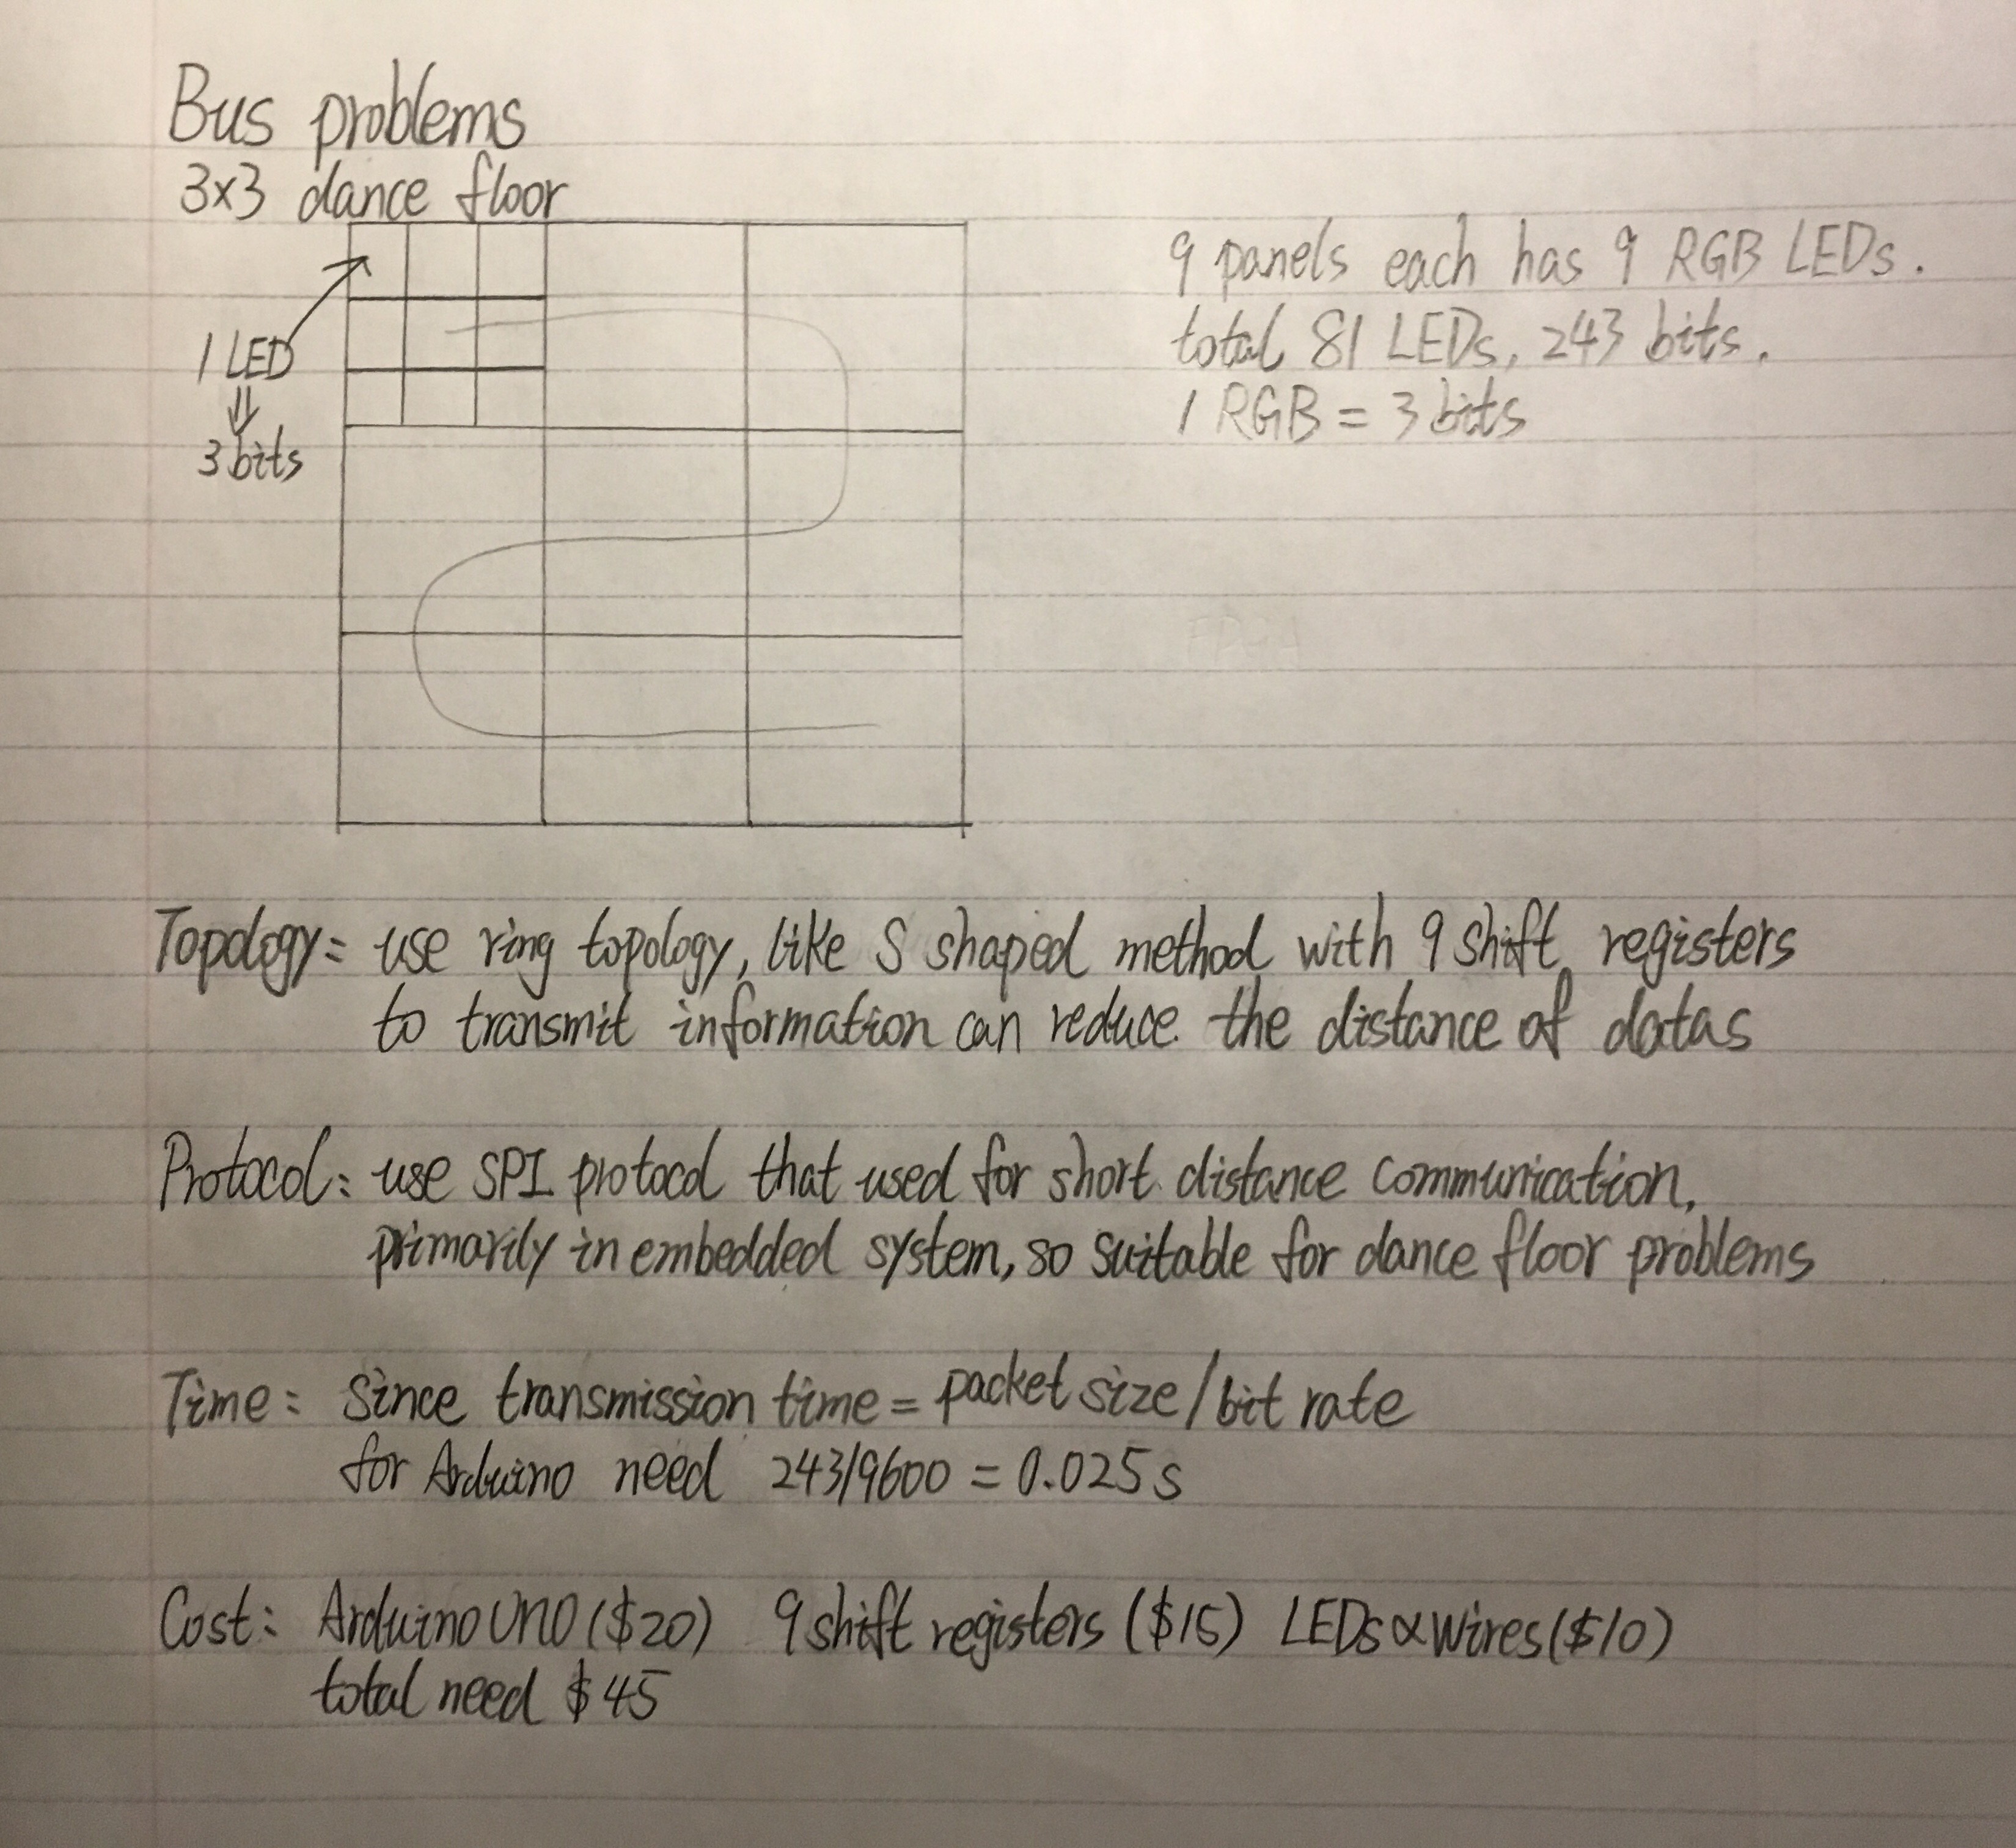 Bus problems
3x3 dance floor
9 panels each has 9 RGB LEDs.
total 81 LEDs, 243 bits.
1 RGB = 3 bits
1 LED
⇓
3 bits
Topology: use ring topology, like S shaped method with 9 shift registers
to transmit information can reduce the distance of datas
Protocol: use SPI protocol that used for short distance communication,
primarily in embedded system, so suitable for dance floor problems
Time: Since transmission time = packet size/bit rate
for Arduino need 243/9600 = 0.025s
Cost: Arduino UNO ($20) 9 shift registers ($15) LEDs & Wires ($10)
total need $45